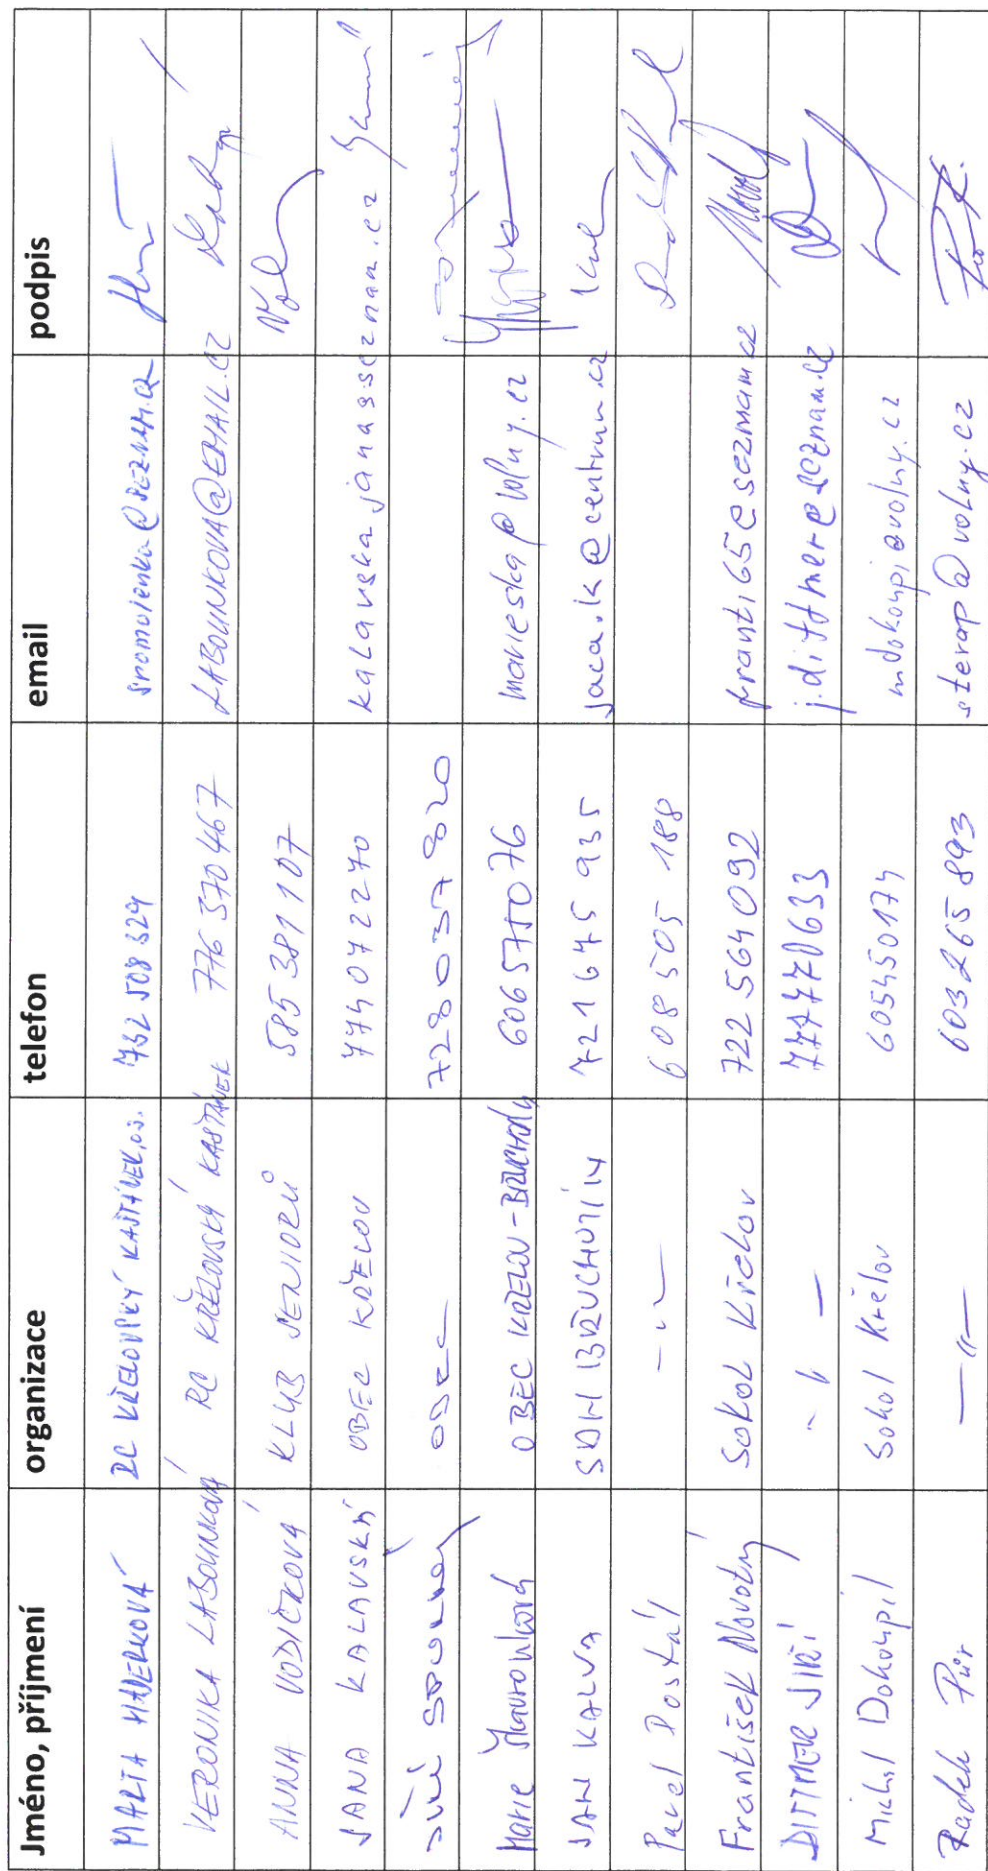 Jméno, příjmení organizace telefon email podpis
MARTA HADERKOVÁ RC KŘELOVSKÝ KAŠTÁNEK, o.s. 732 508 329
VERONIKA LABOUNKOVÁ RC KŘELOVSKÝ KAŠTÁNEK 776 570 467 LABOUNKOVA@EMAIL.CZ
ANNA VODIČKOVÁ KLUB SENIORŮ 585 381 107
JANA KALAVSKÁ OBEC KŘELOV 774072270
JIŘÍ OBEC 728037820
Marie OBEC KŘELOV-BŘUCHOTÍN 606575076 marieska@volny.cz
JAN KALVA SDH BŘUCHOTÍN 721 645 935 jaca.k@centrum.cz
Pavel Dostál -"- 608 505 188
František Novotný Sokol Křelov 722 564 092 franti65@seznam.cz
DITTMER JIŘÍ -"- 777770633 j.dittmer@seznam.cz
Michal Dokoupil Sokol Křelov 605450174 mdokoupi@volny.cz
Radek Půr -"- 603 265 893 sterap@volny.cz